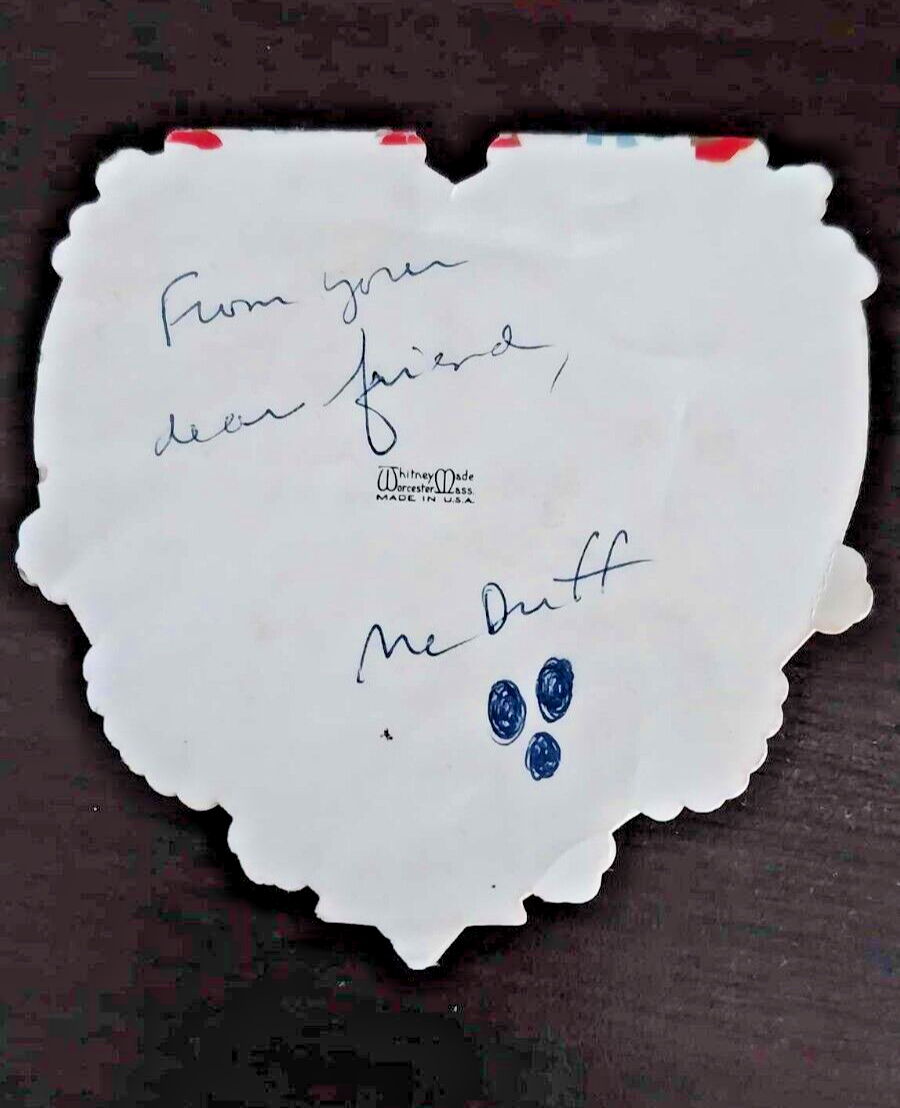 From your
dear friend,
Whitney Made
Worcester Mass.
MADE IN U.S.A.
McDuff